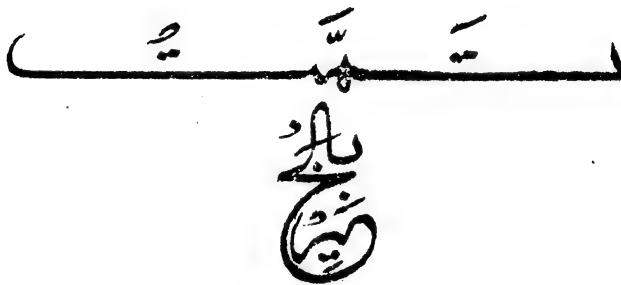 تَمَّتْ
بِالْخَيْرِ